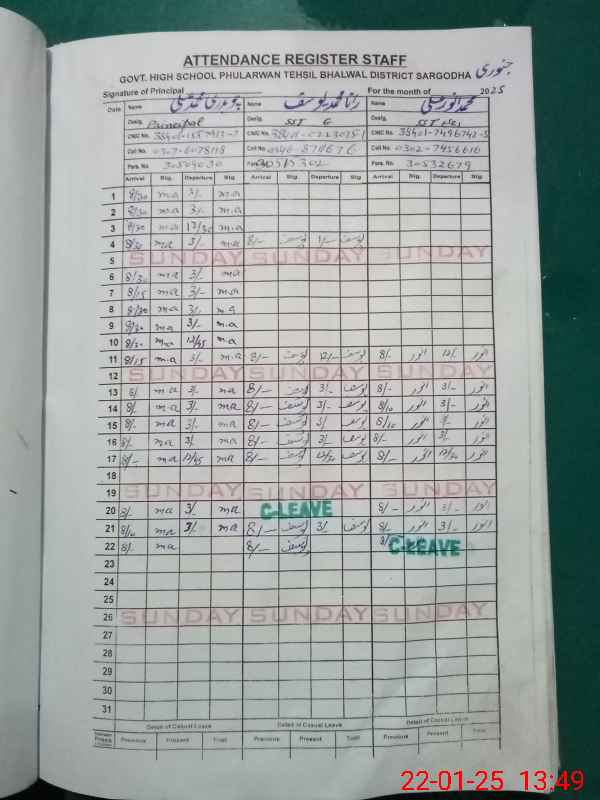 ATTENDANCE REGISTER STAFF
GOVT. HIGH SCHOOL PHULARWAN TEHSIL BHALWAL DISTRICT SARGODHA جنوری
Signature of Principal For the month of 2025
Date Name Name رانا محمد یوسف Name محمد انور علی
Desig. Principal Desig. SST G Desig. SST
CNIC No. CNIC No. CNIC No. 38401-7496742-5
Cell No. 0307-6078118 Cell No. Cell No. 0302-7456616
Pers. No. 30504030 Pers. No. Pers. No. 30532679
Arrival Stg. Departure Stg Arrival Stg. Departure Stg Arrival Stg. Departure Stg
1 8/30 m.a 3/- m.a
2 8/30 m.a 3/- m.a
3 8/30 m.a 12/30 m.a
4 8/30 m.a 3/- m.a 8/- یوسف 1/- یوسف
5 SUNDAY SUNDAY SUNDAY
6 8/30 ma 3/- ma
7 8/15 ma 3/- m.a
8 8/30 ma 3/- m.a
9 8/30 m.a 3/- m.a
10 8/30 m.a 12/45 m.a
11 8/15 m.a 3/- m.a 8/- یوسف 12/- یوسف 8/- انور 12/- انور
12 SUNDAY SUNDAY SUNDAY
13 8/ ma 3/- ma 8/- یوسف 3/- یوسف 8/- انور 3/- انور
14 8/- ma 3/- ma 8/- یوسف 3/- یوسف 8/10 انور 3/- انور
15 8/- ma 3/- ma 8/- یوسف 3/- یوسف 8/10 انور 3/- انور
16 8/- ma 3/- ma 8/- یوسف 3/- یوسف 8/- انور 3/- انور
17 8/- ma 12/45 ma 8/- یوسف 12/30 یوسف 8/- انور 12/30 انور
18
19 SUNDAY SUNDAY SUNDAY
20 8/- ma 3/- ma C-LEAVE 8/- انور 3/- انور
21 8/10 ma 3/- ma 8/- یوسف 3/- یوسف 8/- انور 3/- انور
22 8/- ma 8/- یوسف 8/ C-LEAVE
23
24
25
26 SUNDAY SUNDAY SUNDAY
27
28
29
30
31
Detail of Casual Leave Detail of Casual Leave Detail of Casual Leave
Previous Present Total Previous Present Total Previous Present Total
22-01-25 13:49